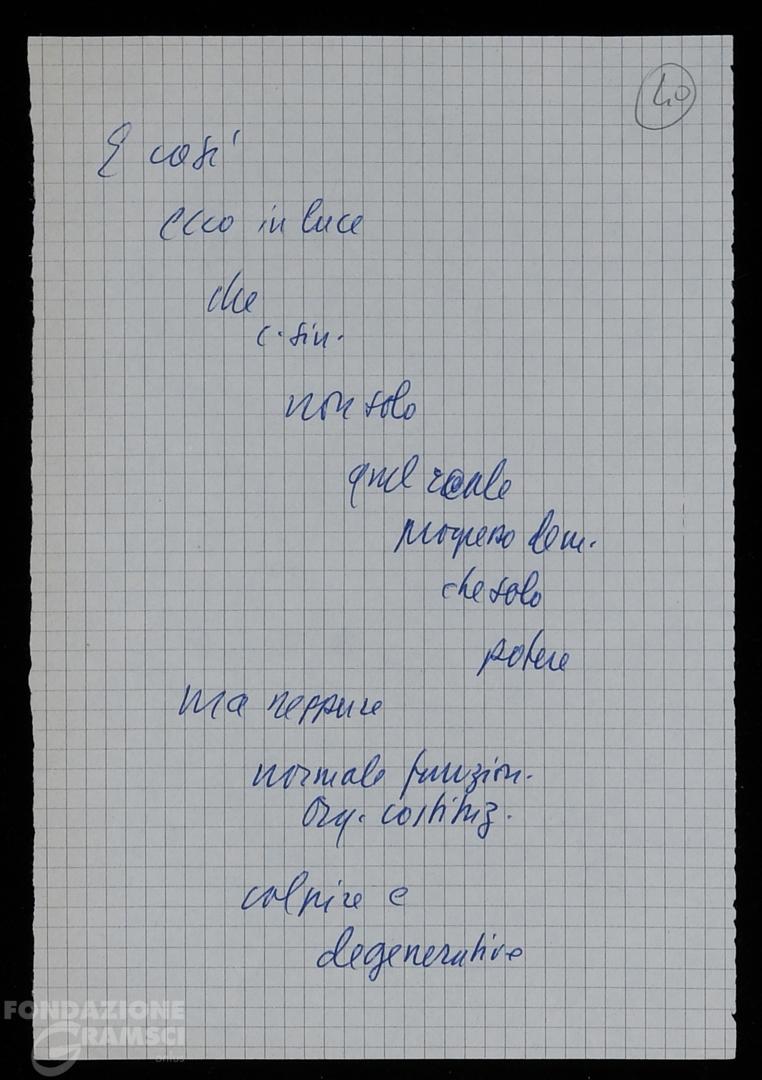 40
E così
ecco in luce
che
c. sin.
non solo
quel reale
progresso dem.
che solo
potere
ma neppure
normale funzion.
Org. costituz.
colpire e
degenerative
FONDAZIONE
GRAMSCI
onlus